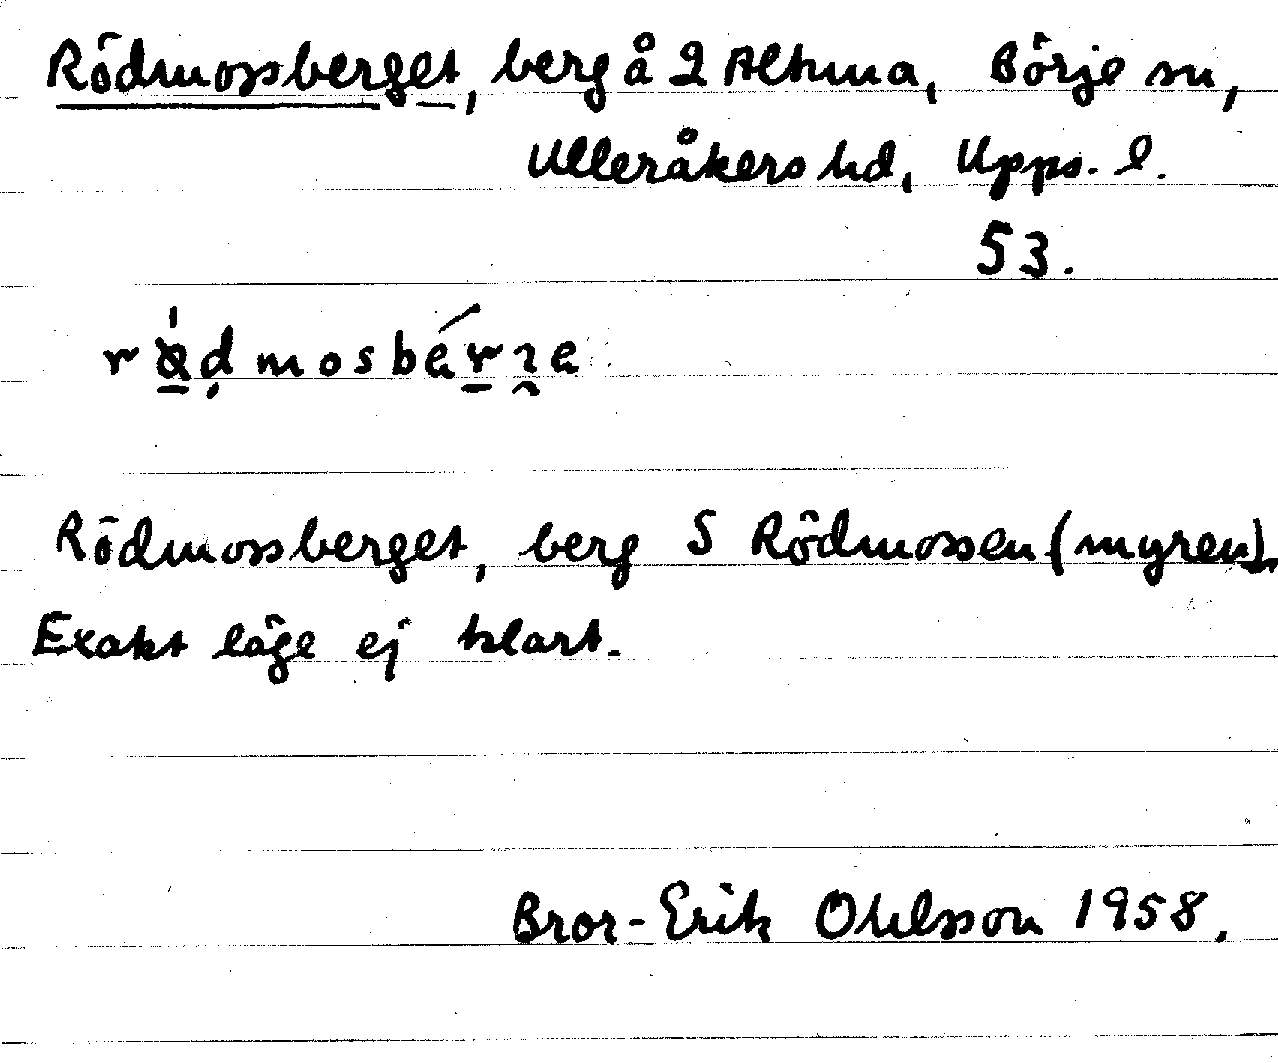 Rödmossberget, berg å 2 Altuna, Börje sn,
Ulleråkers hd, Upps. l.
53.
Rödmossberget, berg S Rödmossen (myren).
Exakt läge ej klart.
Bror-Erik Ohlsson 1958.